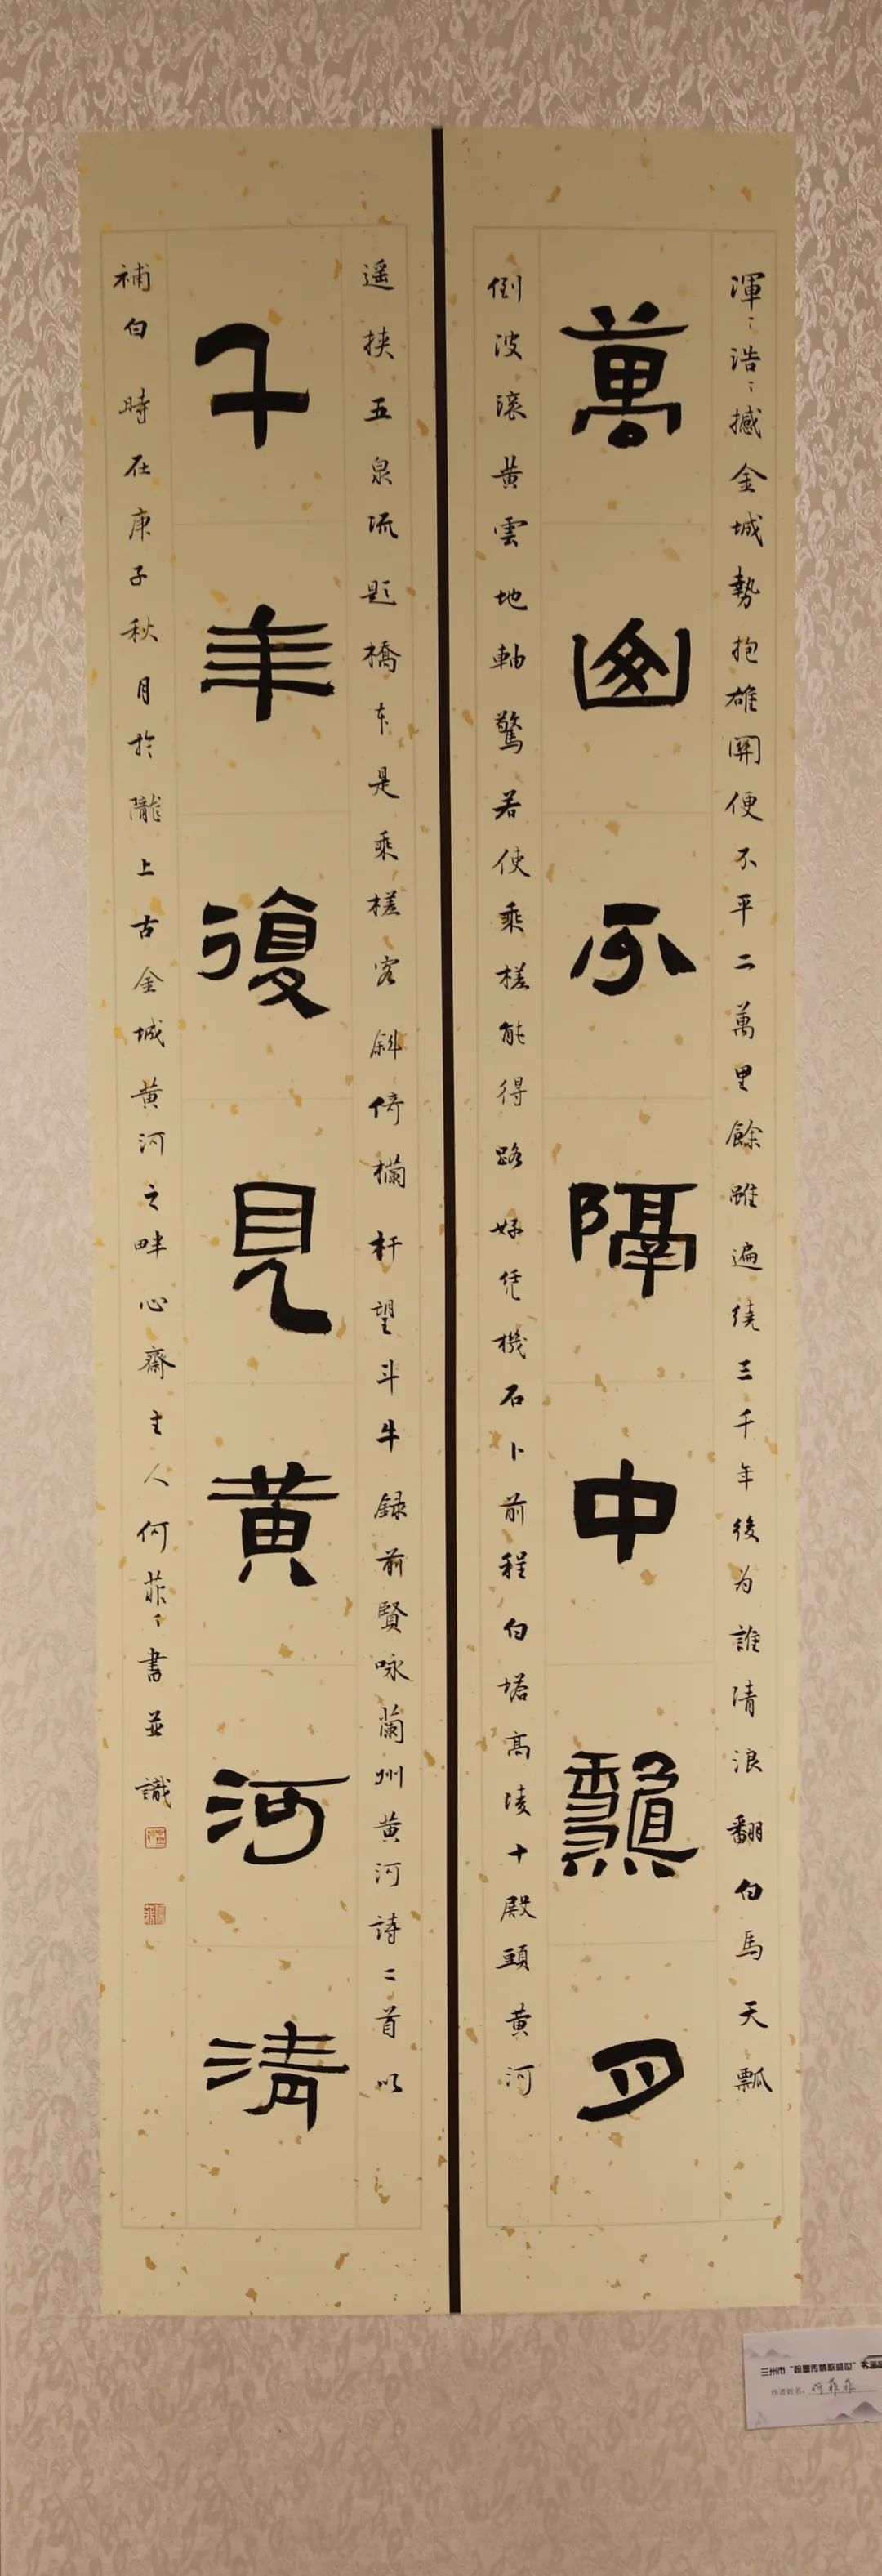 渾〻浩〻撼金城勢抱雄關便不平二萬里餘雖遍繞三千年後为誰清浪翻白馬天瓢
萬山不隔中秋月
倒波滾黃雲地軸驚若使乘槎能得路好凭機石卜前程白塔高凌十殿頭黃河
遥挟五泉流題橋本是乘槎客斜倚欄杆望斗牛錄前賢咏蘭州黃河詩二首以
千年復見黃河清
補白 時在庚子秋月於隴上古金城黃河之畔心齋主人何菲〻書並識
兰州市“翰墨传情歌盛世”书画
作者姓名：何菲菲